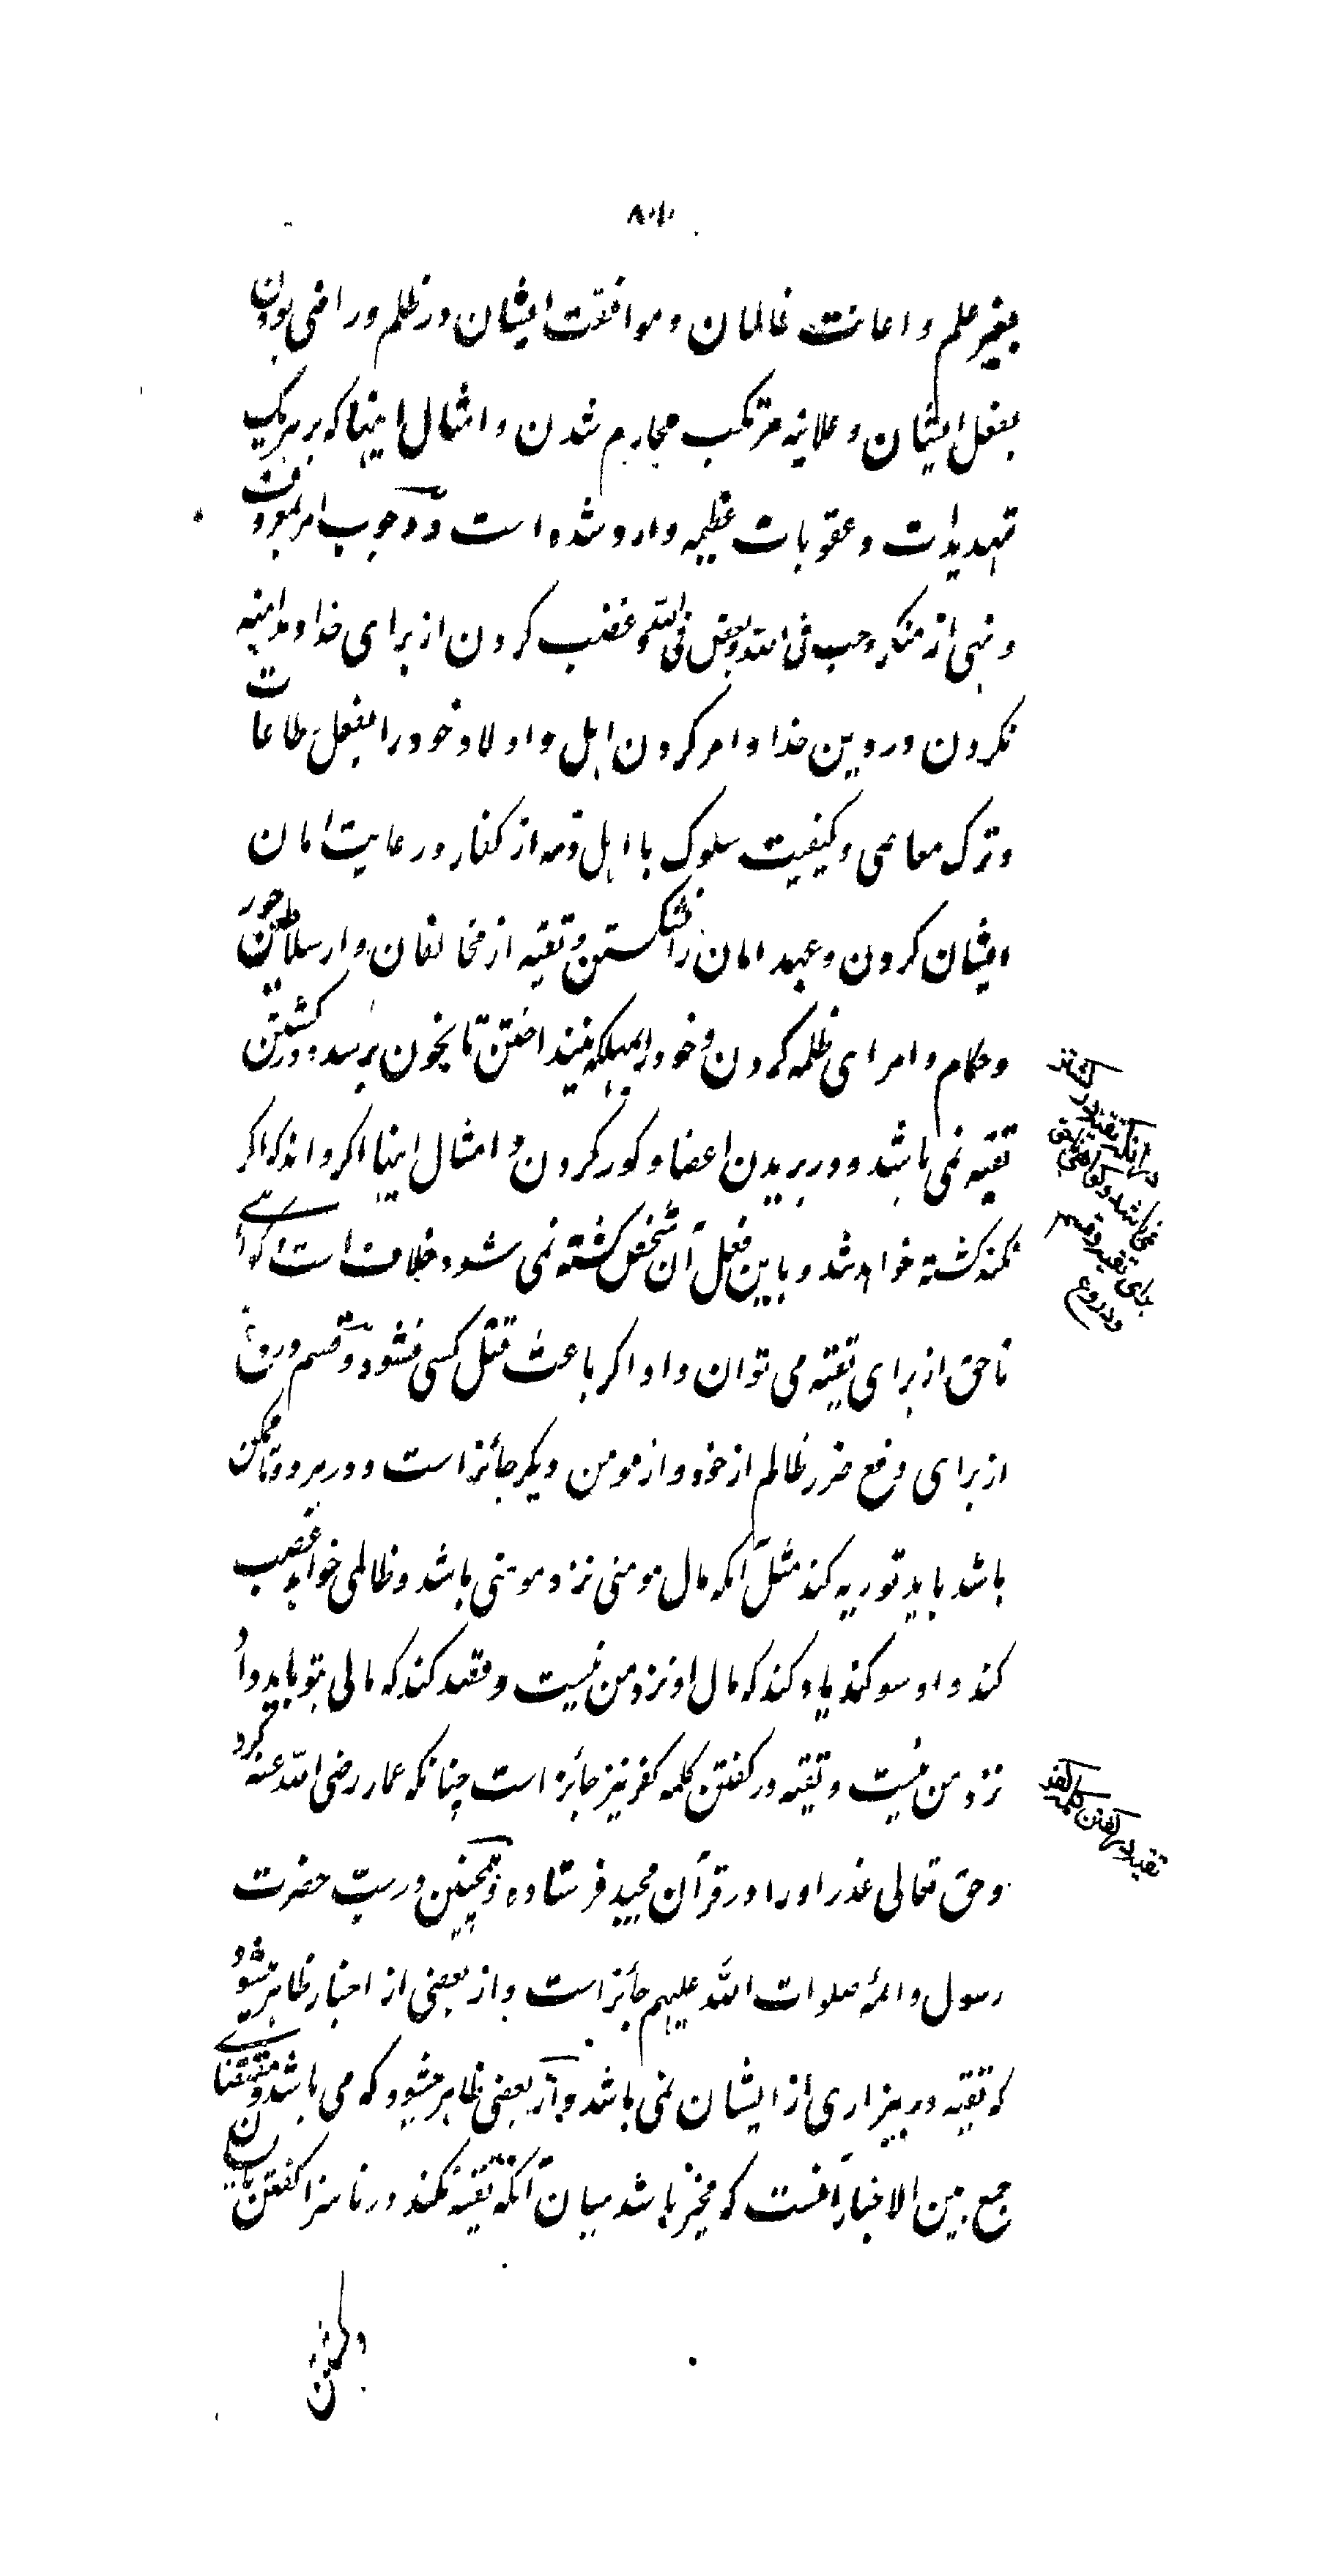 بغیر علم و اعانت ظالمان و موافقت ایشان در ظلم و راضی بودن
بفعل ایشان و علانیه مرتکب محارم شدن و امثال اینها که بر هر یک
تهدیدات و عقوبات عظیمه وارد شده است و وجوب امر بمعروف
و نهی از منکر و حب فی الله و بغض فی الله و غضب کردن از برای خدا و مداهنه
نکردن در دین خدا و امر کردن اهل و اولاد خود را بفعل طاعات
و ترک معاصی و کیفیت سلوک با اهل ذمه از کفار و رعایت امان
ایشان کردن و عهد امان را نشکستن و تقیه از مخالفان و از سلاطین جور
و حکام و امرای ظلمه کردن و خود را بمهلکه نینداختن تا بخون نرسد و در کشتن
تقیه نمی باشد و در بریدن اعضا و کور کردن و امثال اینها اگر داند که اگر
نکند کشته خواهد شد و باین فعل آن شخص کشته نمی شود خلاف است و گواهی
ناحق از برای تقیه می توان داد اگر باعث قتل کسی نشود و قسم دروغ
از برای دفع ضرر ظالم از خود و از مومن دیگر جائز است و در هر دو تا ممکن
باشد باید توریه کند مثل آنکه مال مومنی نزد مومنی باشد و ظالمی خواهد غصب
کند و او سوگند یاد کند که مال او نزد من نیست و قصد کند که مالی بتو باید داد
نزد من نیست و تقیه در گفتن کلمه کفر نیز جائز است چنانکه عمار رضی الله عنه کرد
و حق تعالی عذر او را در قرآن مجید فرستاده و همچنین در سبّ حضرت
رسول و ائمه صلوات الله علیهم جائز است و از بعضی از اخبار ظاهر میشود
که تقیه در بیزاری از ایشان نمی باشد و از بعضی ظاهر میشود که می باشد و مقتضای
جمع بین الاخبار آنست که مخیر باشد میان آنکه تقیه نکند در ناسزا گفتن بایشان
در آنکه تقیه در کشتن
نمی باشد و گواهی ناحق
برای تقیه و قسم
دروغ
تقیه در گفتن کلمه کفر